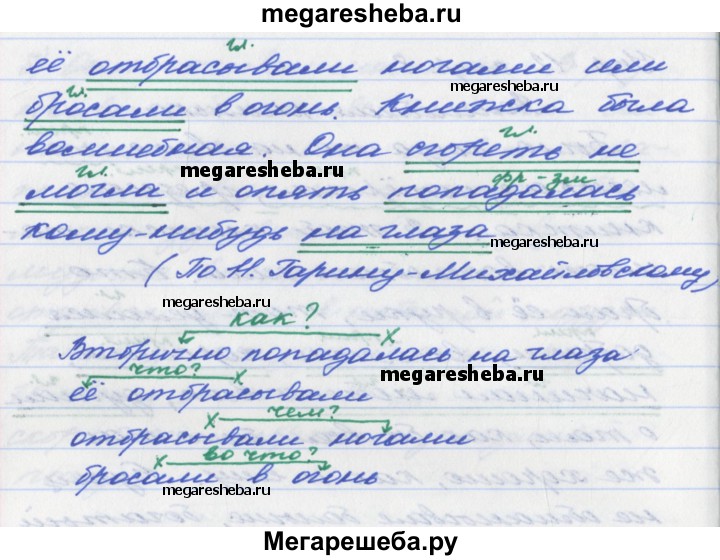 megaresheba.ru
гл.
её отбрасывали ногами или
гл.
бросали в огонь. Книжка была
megaresheba.ru
гл.
волшебная. Она сгореть не
megaresheba.ru
гл. фр-зм
могла и опять попадалась
кому-нибудь на глаза
megaresheba.ru
(По Н. Гарину-Михайловскому)
megaresheba.ru
как?
х
Вторично попадалась на глаза
что?
х
megaresheba.ru
её отбрасывали
х чем?
отбрасывали ногами
х во что?
бросали в огонь
megaresheba.ru
Мегарешеба.ру